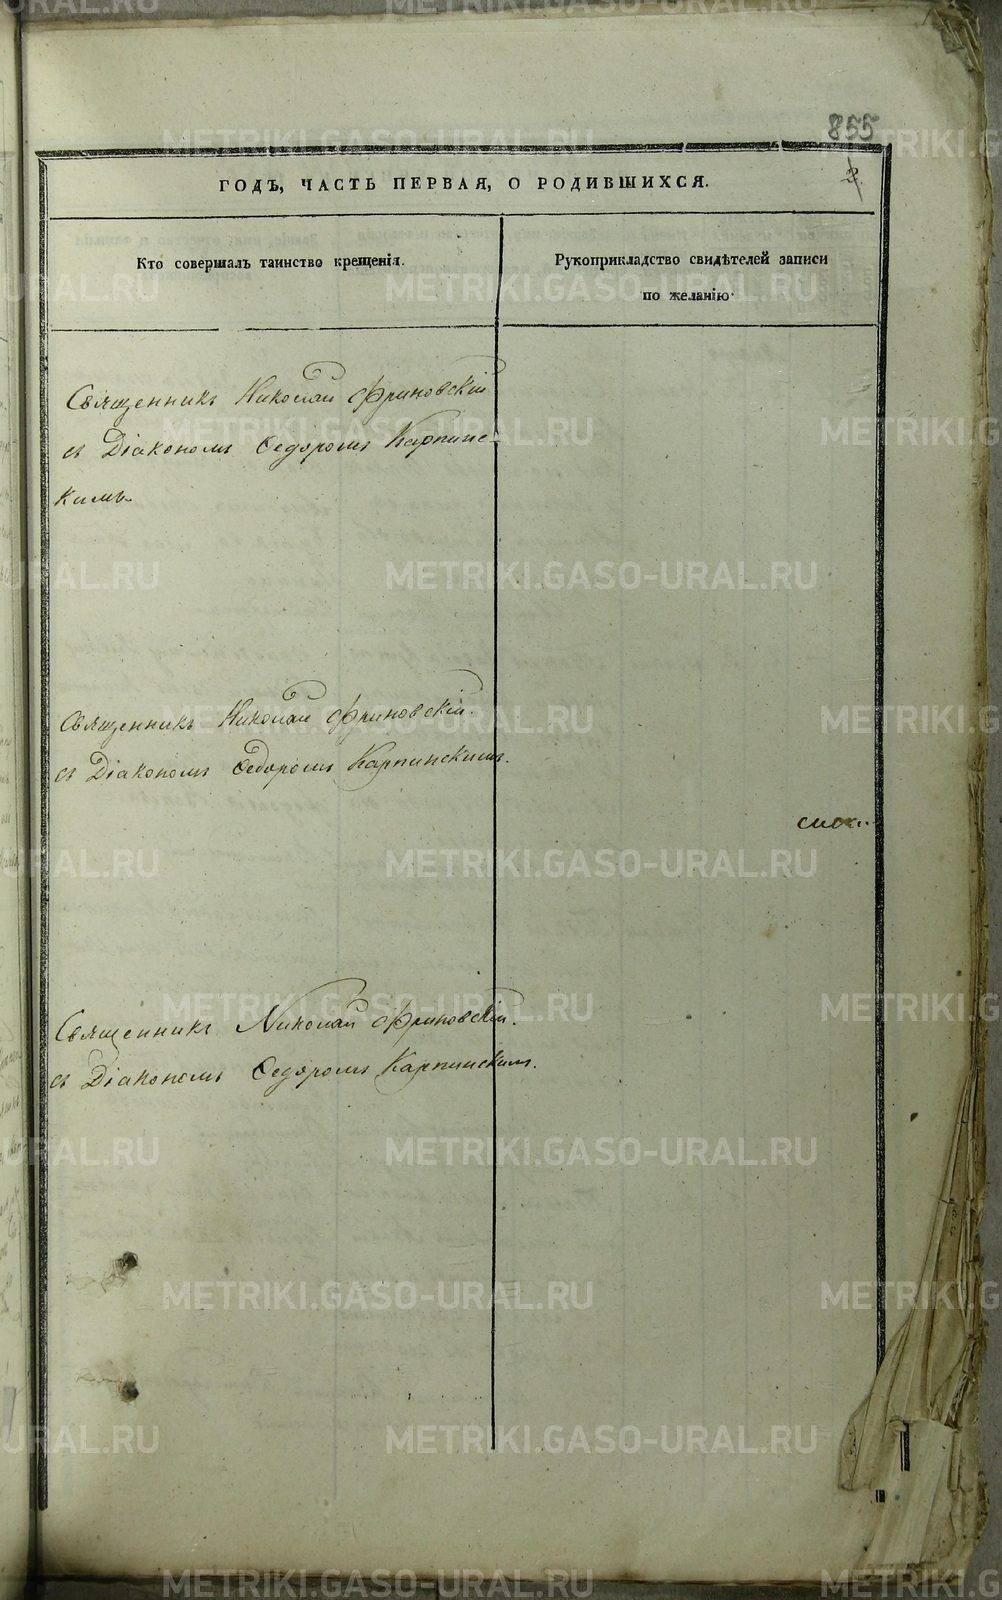 855
ГОДЪ, ЧАСТЬ ПЕРВАЯ, О РОДИВШИХСЯ.
2
Кто совершалъ таинство крещенія.
Рукоприкладство свидѣтелей записи
по желанію.
Священникъ Николай Фриновскій
съ Діакономъ Ѳедоромъ Карпинс-
кимъ.
Священникъ Николай Фриновскій.
съ Діакономъ Ѳедоромъ Карпинскимъ.
Священникъ Николай Фриновскій.
съ Діакономъ Ѳедоромъ Карпинскимъ.
METRIKI.GASO-URAL.RU